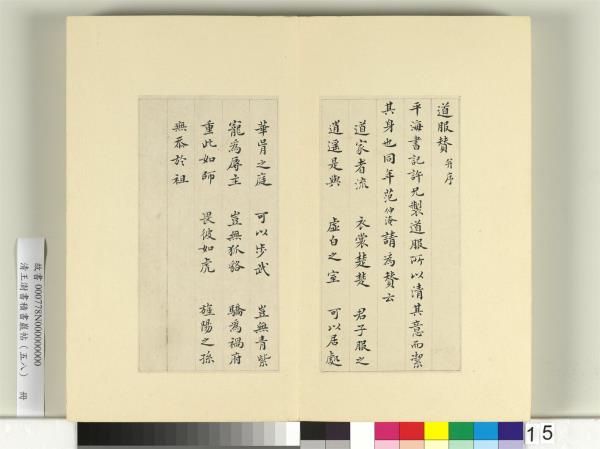 道服贊 并序
平海書記許兄製道服所以清其意而潔
其身也同年范仲淹請為贊云
道家者流 衣裳楚楚 君子服之
逍遙是與 虛白之室 可以居處
華胥之庭 可以步武 豈無青紫
寵為辱主 豈無狐貉 驕為禍府
重此如師 畏彼如虎 旌陽之孫
無忝於祖
故書 000778N000000000
清王澍書積書巖帖(五八) 冊
15